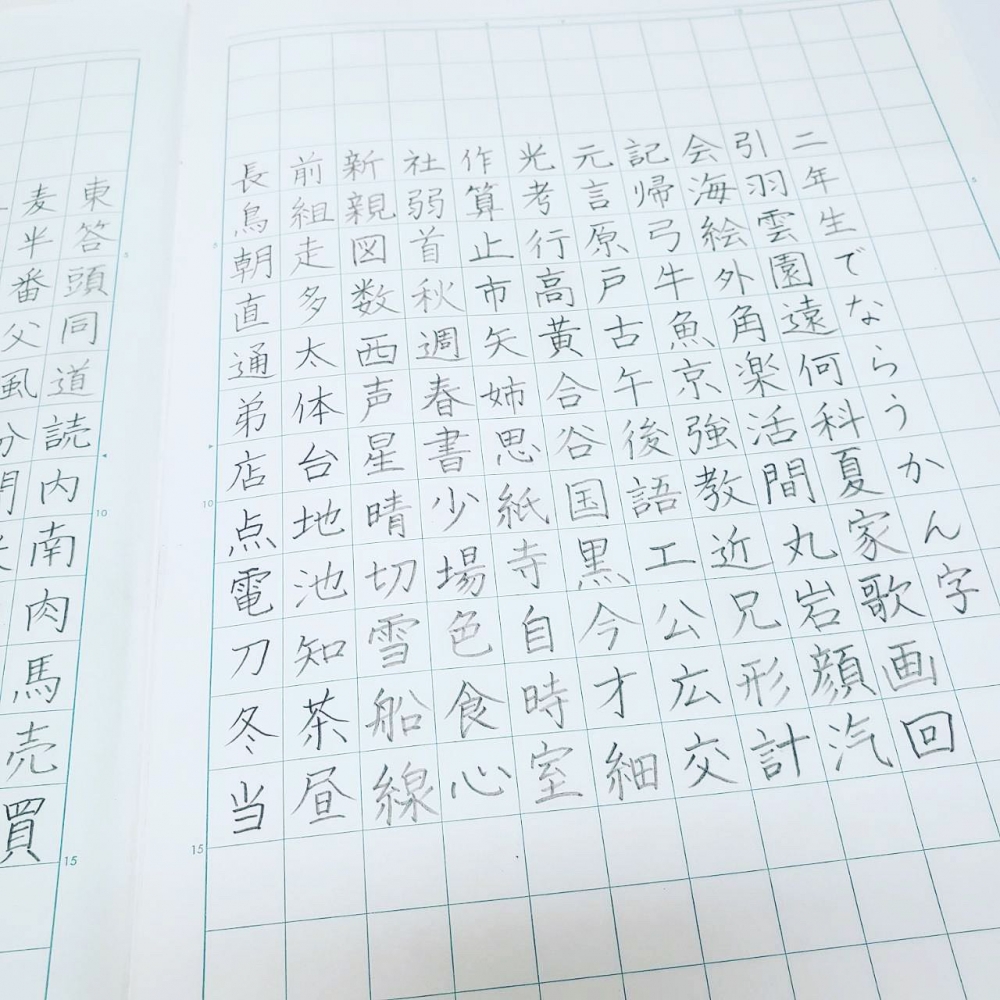 二年生でならうかん字
引羽雲園遠何科夏家歌画回
会海絵外角楽活間丸岩顔汽
記帰弓牛魚京強教近兄形計
元言原戸古午後語工公広交
光考行高黄合谷国黒今才細
作算止市矢姉思紙寺自時室
社弱首秋週春書少場色食心
新親図数西声星晴切雪船線
前組走多太体台地池知茶昼
長鳥朝直通弟店点電刀冬当
東答頭同道読内南肉馬売買
麦半番父風分
5
10
15
5
10
15